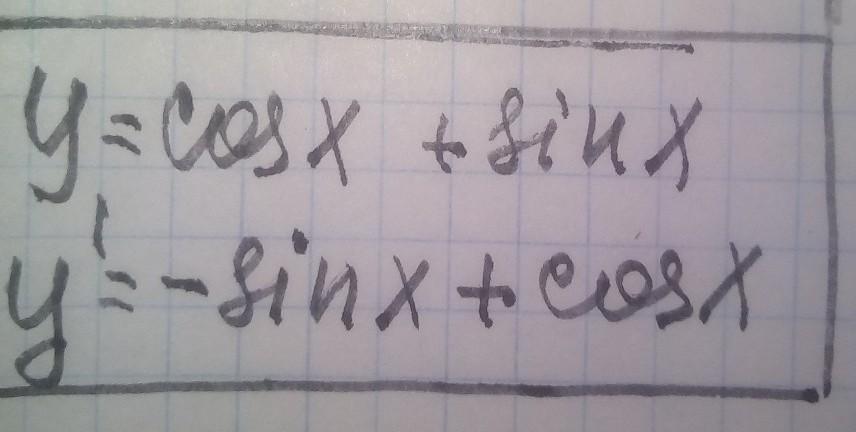 y = cosx + sinx
y' = -sinx + cosx